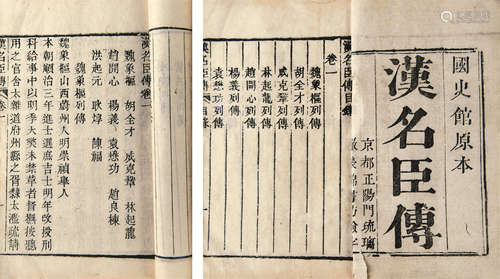 國史館原本
漢名臣傳
京都正陽門琉璃
漢名臣傳目錄
卷一
魏象樞列傳
胡全才列傳
成克鞏列傳
林起龍列傳
趙開心列傳
楊義列傳
袁懋功列傳
漢名臣傳
漢名臣傳卷一
魏象樞 胡全才 成克鞏 林起龍
趙開心 楊義 袁懋功 趙良棟
洪起元 耿焞 陳福
魏象樞山西蔚州人明崇禎舉人
本朝順治三年進士選庶吉士明年改授刑
科給事中以明季大弊未革者督撫按聽
用之官舍太雜道府州縣之胥隸太濫疏請
漢名臣傳 卷一